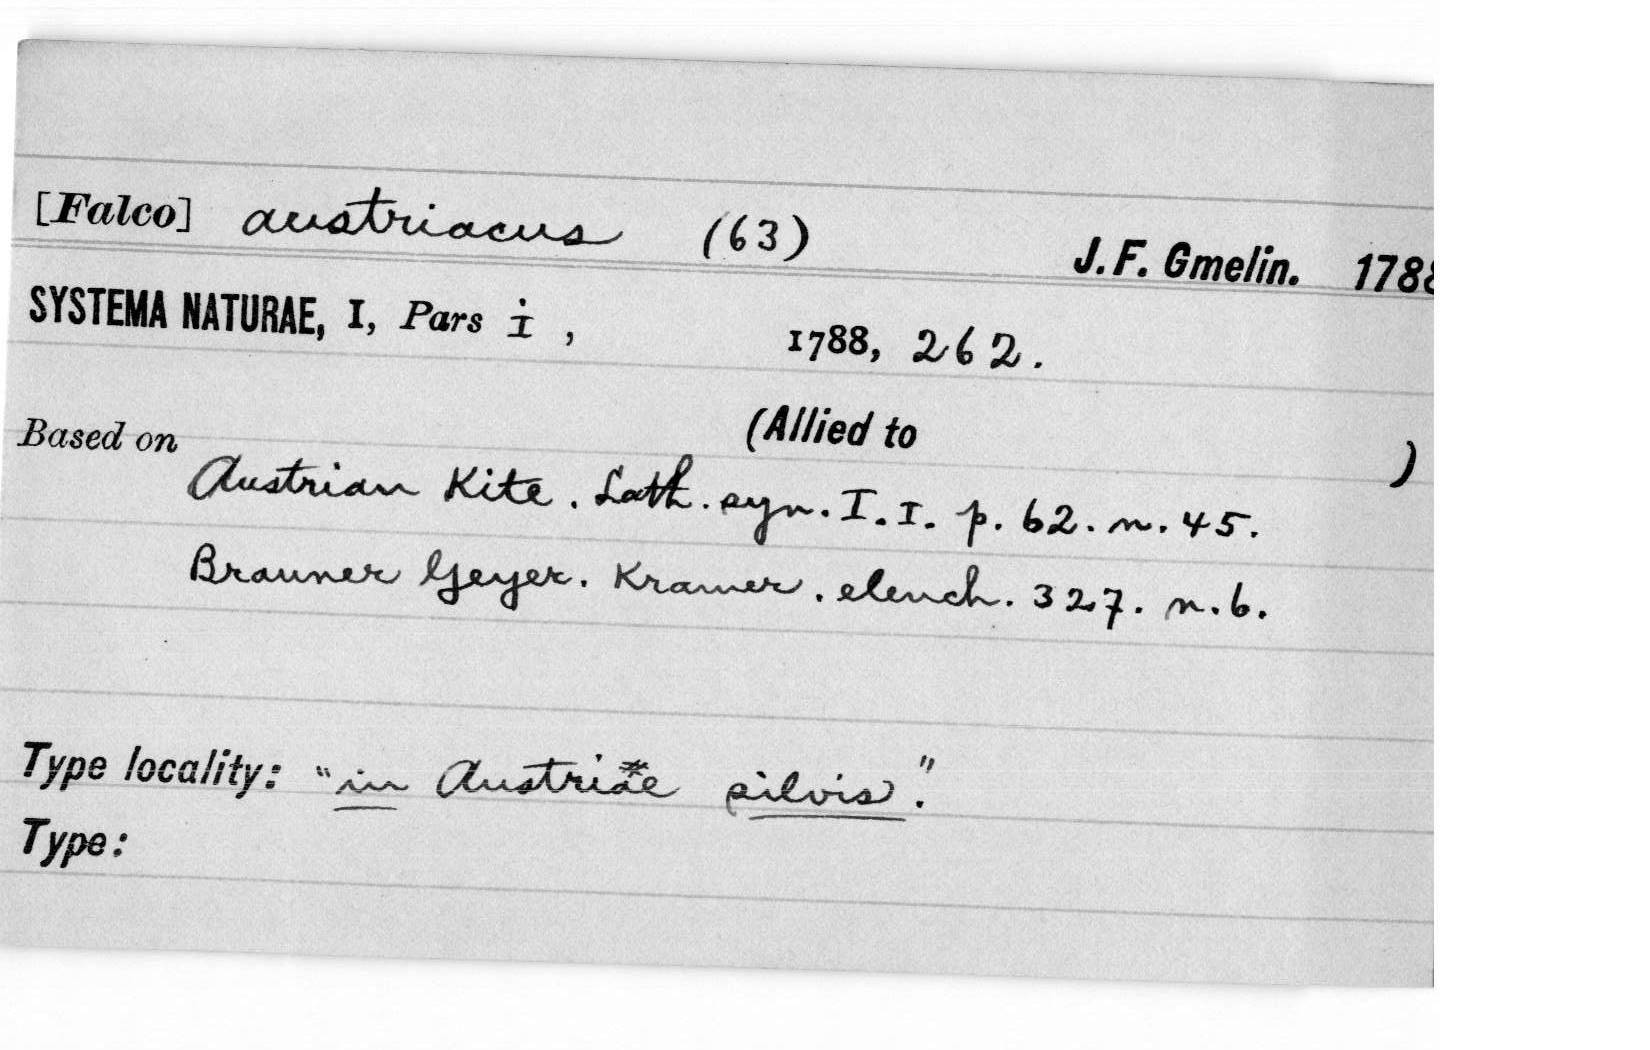 [Falco] austriacus (63) J. F. Gmelin. 1788
SYSTEMA NATURAE, I, Pars i, 1788, 262.
Based on (Allied to )
Austrian Kite. Lath. syn. I. I. p. 62. n. 45.
Brauner Geyer. Kramer. elench. 327. n. 6.
Type locality: "in Austriae silvis."
Type: